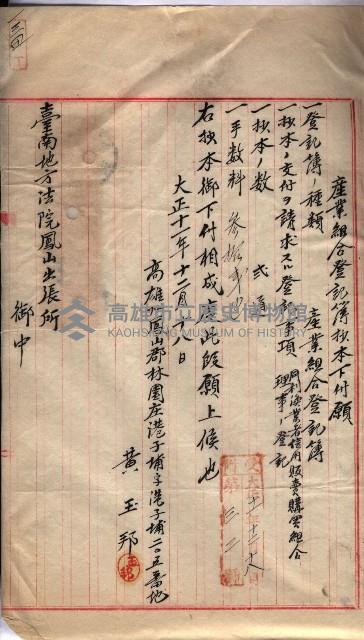 産業組合登記簿抄本下付願
一登記簿ノ種類 産業組合登記簿
一抄本ノ交付ヲ請求スル登記事項 同利漁業者信用販賣購買組合
理事ノ登記
一抄本ノ数 弐通
一手数料 参拾
右抄本御下付相成度此段願上候也
大正十一年十二月 八日
高雄州鳳山郡林園庄港子埔字港子埔二〇五番地
黄 玉邦
臺南地方法院鳳山出張所
御中
高雄市立歷史博物館
KAOHSIUNG MUSEUM OF HISTORY